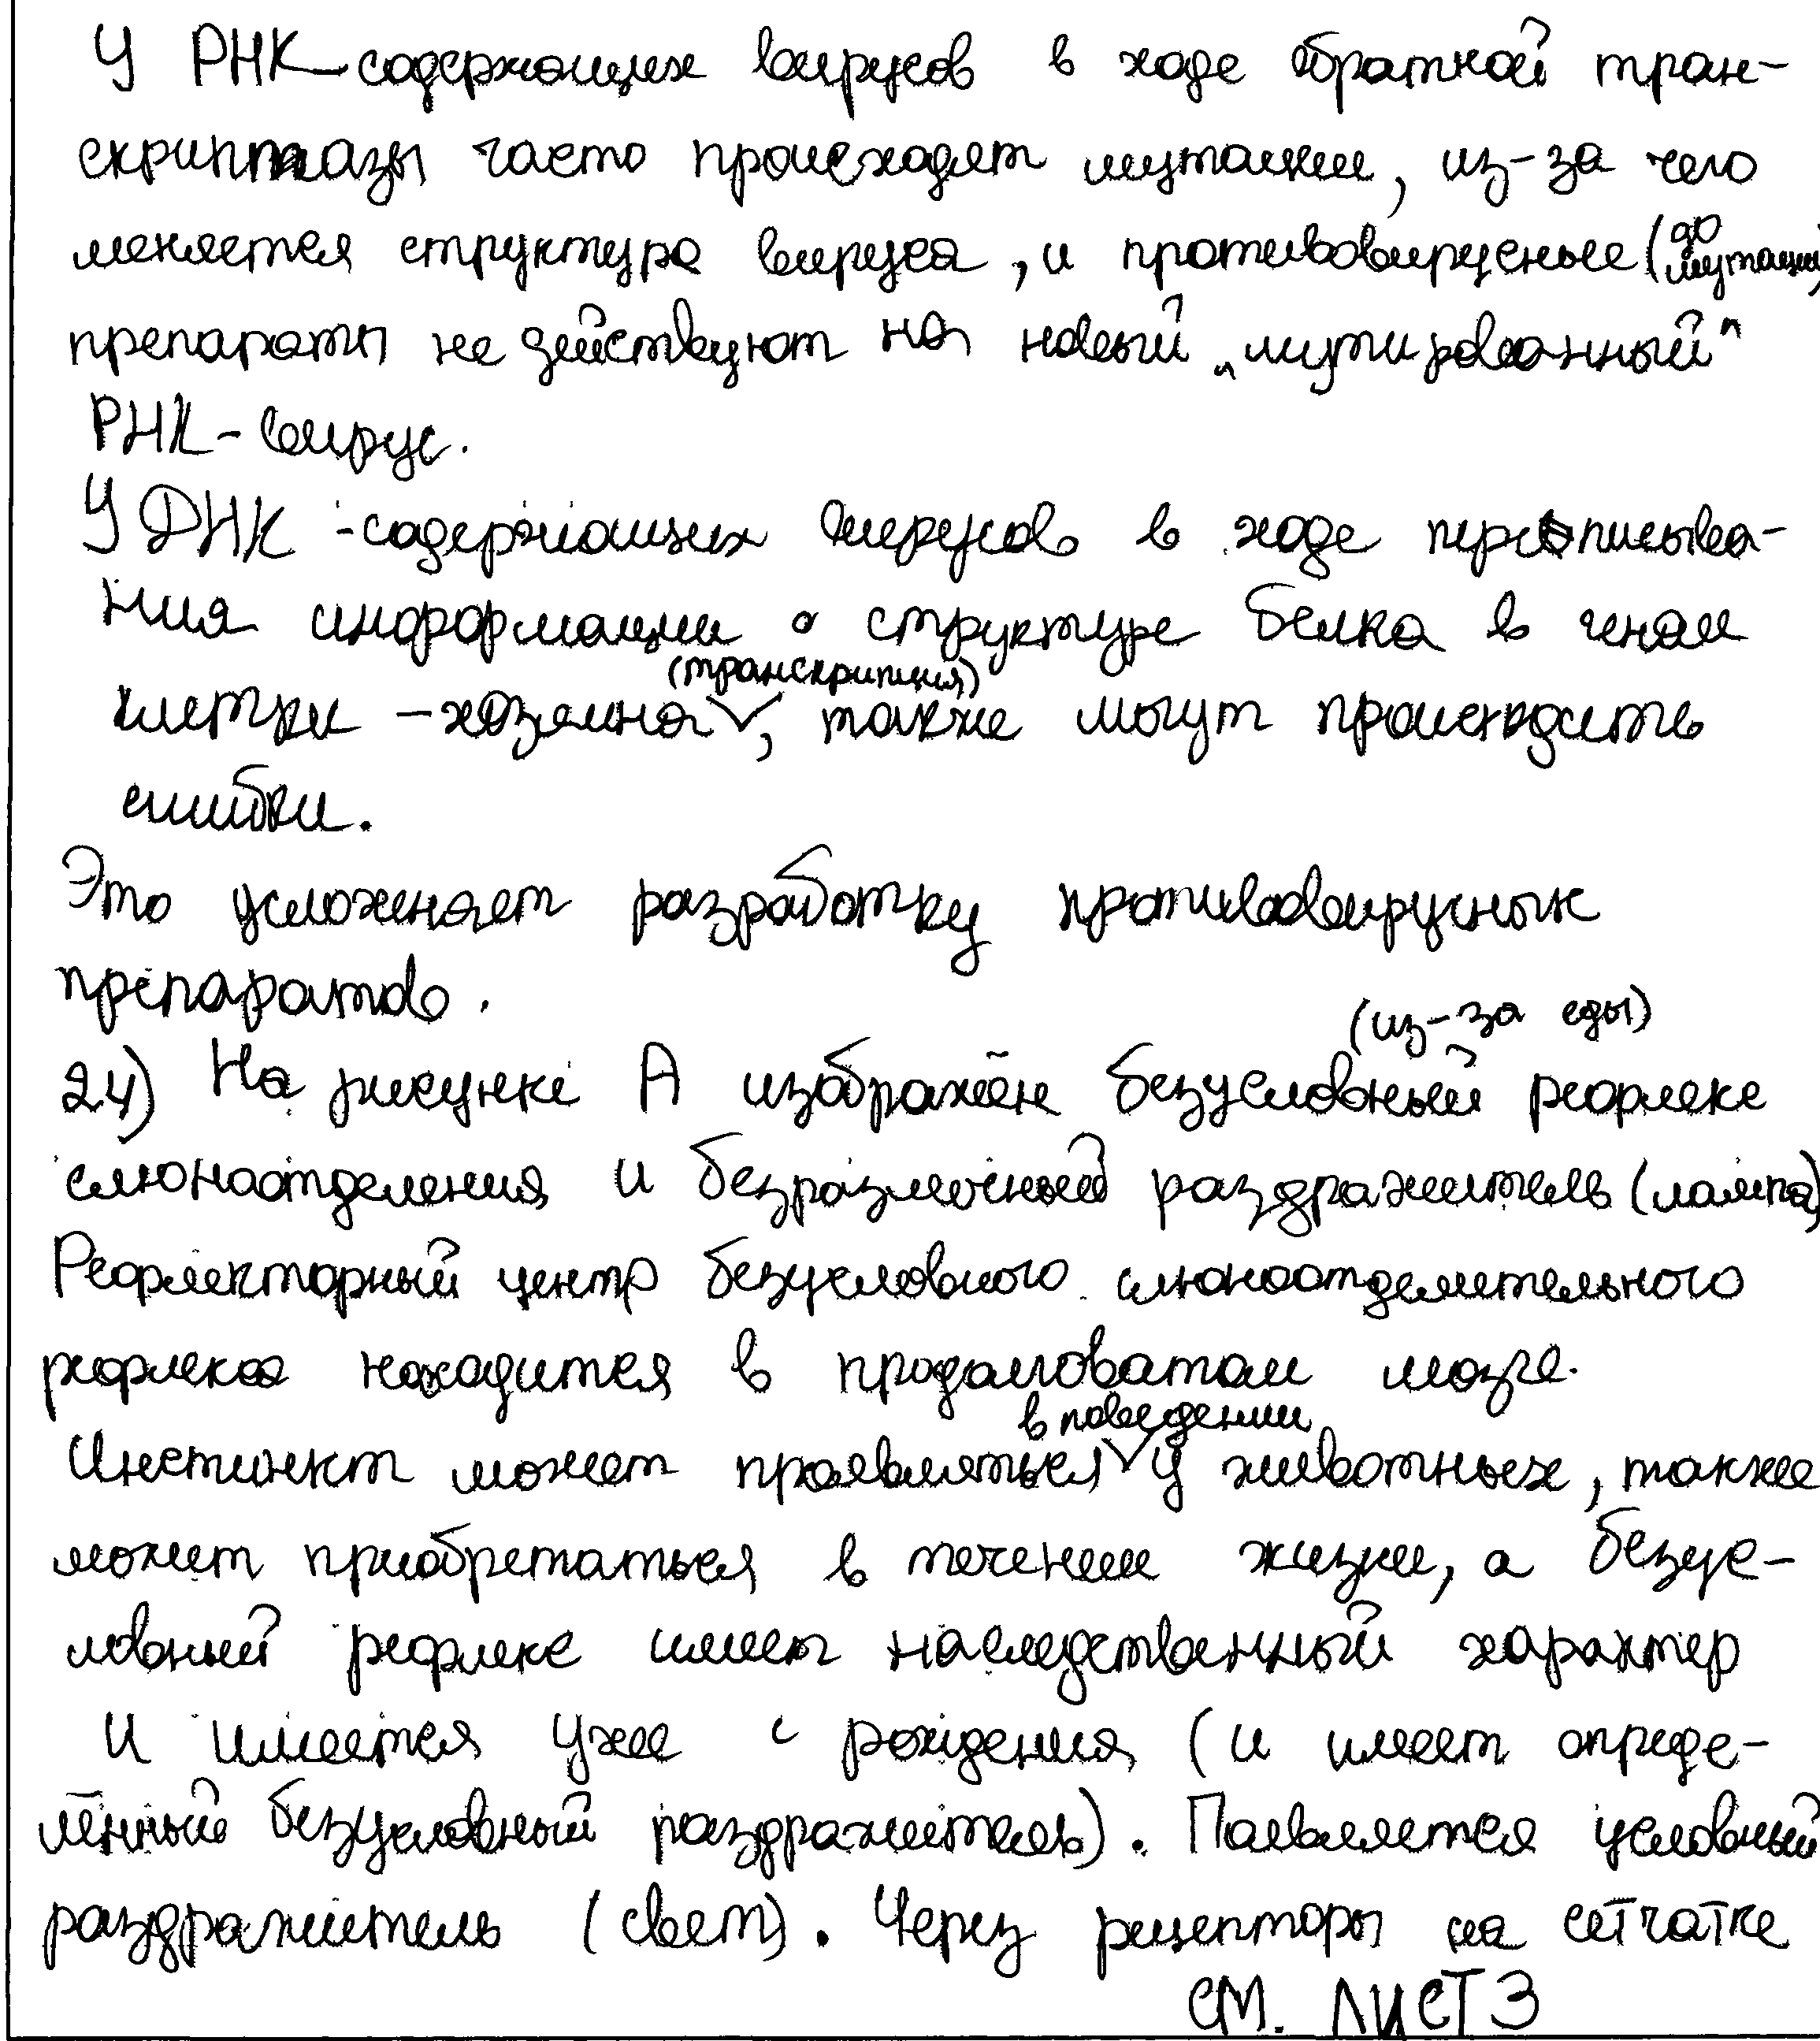 У РНК-содержащих вирусов в ходе обратной тран-
скриптазы часто происходят мутации, из-за чего
меняется структура вируса, и противовирусные (до мутации)
препараты не действуют на новый „мутированный"
РНК-вирус.
У ДНК-содержащих вирусов в ходе переписыва-
ния информации о структуре белка в геном
(транскрипция)
клетки-хозяина ∨, также могут происходить
ошибки.
Это усложняет разработку противовирусных
препаратов.
(из-за еды)
24) На рисунке А изображён безусловный рефлекс
слюноотделения и безразличный раздражитель (лампа)
Рефлекторный центр безусловного слюноотделительного
рефлекса находится в продолговатом мозге.
в поведении
Инстинкт может проявляться ∨ у животных, также
может приобретаться в течении жизни, а безус-
ловный рефлекс имеет наследственный характер
и имеется уже с рождения (и имеет опреде-
лённый безусловный раздражитель). Появляется условный
раздражитель (свет). Через рецепторы на сетчатке
СМ. ЛИСТ 3